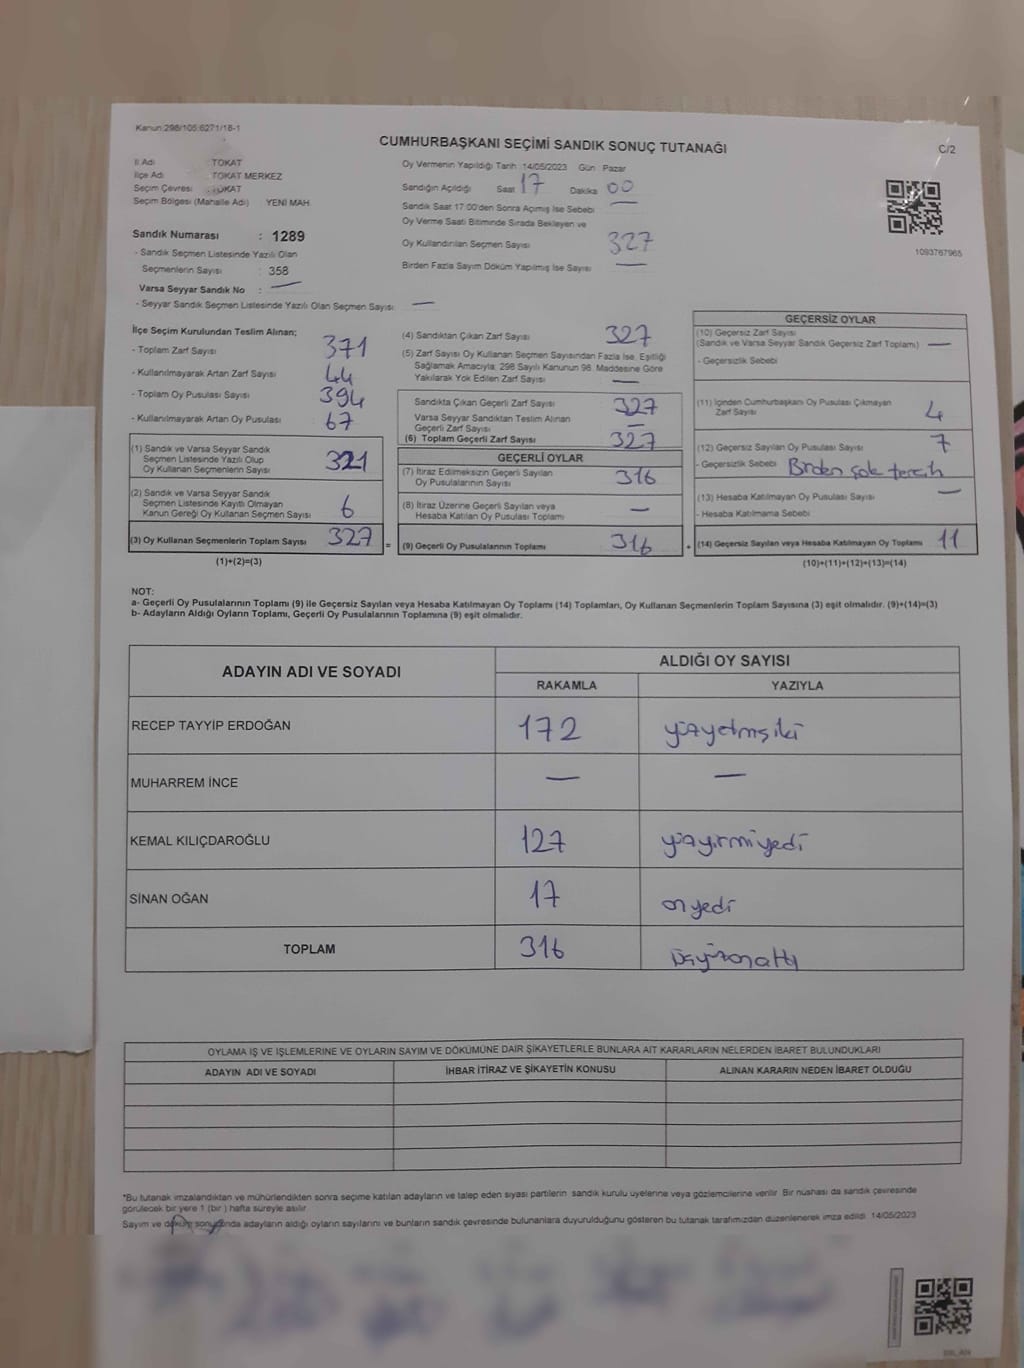 Kanun:298/105;6271/18-1
CUMHURBAŞKANI SEÇİMİ SANDIK SONUÇ TUTANAĞI
C/2
İl Adı : TOKAT
İlçe Adı : TOKAT MERKEZ
Seçim Çevresi : TOKAT
Seçim Bölgesi (Mahalle Adı) YENİ MAH.
Sandık Numarası : 1289
- Sandık Seçmen Listesinde Yazılı Olan
Seçmenlerin Sayısı : 358
Varsa Seyyar Sandık No : —
- Seyyar Sandık Seçmen Listesinde Yazılı Olan Seçmen Sayısı —
Oy Vermenin Yapıldığı Tarih 14/05/2023 Gün Pazar
Sandığın Açıldığı Saat 17 Dakika 00
Sandık Saat 17:00'den Sonra Açımış İse Sebebi —
Oy Verme Saati Bitiminde Sırada Bekleyen ve
Oy Kullandırılan Seçmen Sayısı 327
Birden Fazla Sayım Döküm Yapılmış İse Sayısı —
1093767965
İlçe Seçim Kurulundan Teslim Alınan;
- Toplam Zarf Sayısı 371
- Kullanılmayarak Artan Zarf Sayısı 44
- Toplam Oy Pusulası Sayısı 394
- Kullanılmayarak Artan Oy Pusulası 67
(1) Sandık ve Varsa Seyyar Sandık
Seçmen Listesinde Yazılı Olup
Oy Kullanan Seçmenlerin Sayısı 321
(2) Sandık ve Varsa Seyyar Sandık
Seçmen Listesinde Kayıtlı Olmayan
Kanun Gereği Oy Kullanan Seçmen Sayısı 6
(3) Oy Kullanan Seçmenlerin Toplam Sayısı 327 =
(1)+(2)=(3)
(4) Sandıktan Çıkan Zarf Sayısı 327
(5) Zarf Sayısı Oy Kullanan Seçmen Sayısından Fazla İse, Eşitliği
Sağlamak Amacıyla; 298 Sayılı Kanunun 98. Maddesine Göre
Yakılarak Yok Edilen Zarf Sayısı —
Sandıkta Çıkan Geçerli Zarf Sayısı 327
Varsa Seyyar Sandıktan Teslim Alınan
Geçerli Zarf Sayısı —
(6) Toplam Geçerli Zarf Sayısı 327
GEÇERLİ OYLAR
(7) İtiraz Edilmeksizin Geçerli Sayılan
Oy Pusulalarının Sayısı 316
(8) İtiraz Üzerine Geçerli Sayılan veya
Hesaba Katılan Oy Pusulası Toplamı —
(9) Geçerli Oy Pusulalarının Toplamı 316 +
GEÇERSİZ OYLAR
(10) Geçersiz Zarf Sayısı
(Sandık ve Varsa Seyyar Sandık Geçersiz Zarf Toplamı) —
- Geçersizlik Sebebi
(11) İçinden Cumhurbaşkanı Oy Pusulası Çıkmayan
Zarf Sayısı 4
(12) Geçersiz Sayılan Oy Pusulası Sayısı 7
- Geçersizlik Sebebi Birden çok tercih
(13) Hesaba Katılmayan Oy Pusulası Sayısı —
- Hesaba Katılmama Sebebi
(14) Geçersiz Sayılan veya Hesaba Katılmayan Oy Toplamı 11
(10)+(11)+(12)+(13)=(14)
NOT:
a- Geçerli Oy Pusulalarının Toplamı (9) ile Geçersiz Sayılan veya Hesaba Katılmayan Oy Toplamı (14) Toplamları, Oy Kullanan Seçmenlerin Toplam Sayısına (3) eşit olmalıdır. (9)+(14)=(3)
b- Adayların Aldığı Oyların Toplamı, Geçerli Oy Pusulalarının Toplamına (9) eşit olmalıdır.
ADAYIN ADI VE SOYADI
ALDIĞI OY SAYISI
RAKAMLA YAZIYLA
RECEP TAYYİP ERDOĞAN 172 yüzyetmişiki
MUHARREM İNCE — —
KEMAL KILIÇDAROĞLU 127 yüzyirmiyedi
SİNAN OĞAN 17 onyedi
TOPLAM 316 üçyüzonaltı
OYLAMA İŞ VE İŞLEMLERİNE VE OYLARIN SAYIM VE DÖKÜMÜNE DAİR ŞİKAYETLERLE BUNLARA AİT KARARLARIN NELERDEN İBARET BULUNDUKLARI
ADAYIN ADI VE SOYADI İHBAR İTİRAZ VE ŞİKAYETİN KONUSU ALINAN KARARIN NEDEN İBARET OLDUĞU
*Bu tutanak imzalandıktan ve mühürlendikten sonra seçime katılan adayların ve talep eden siyasi partilerin sandık kurulu üyelerine veya gözlemcilerine verilir. Bir nüshası da sandık çevresinde
görülecek bir yere 1 (bir) hafta süreyle asılır
Sayım ve döküm sonunda adayların aldığı oyların sayılarını ve bunların sandık çevresinde bulunanlara duyurulduğunu gösteren bu tutanak tarafımızdan düzenlenerek imza edildi. 14/05/2023